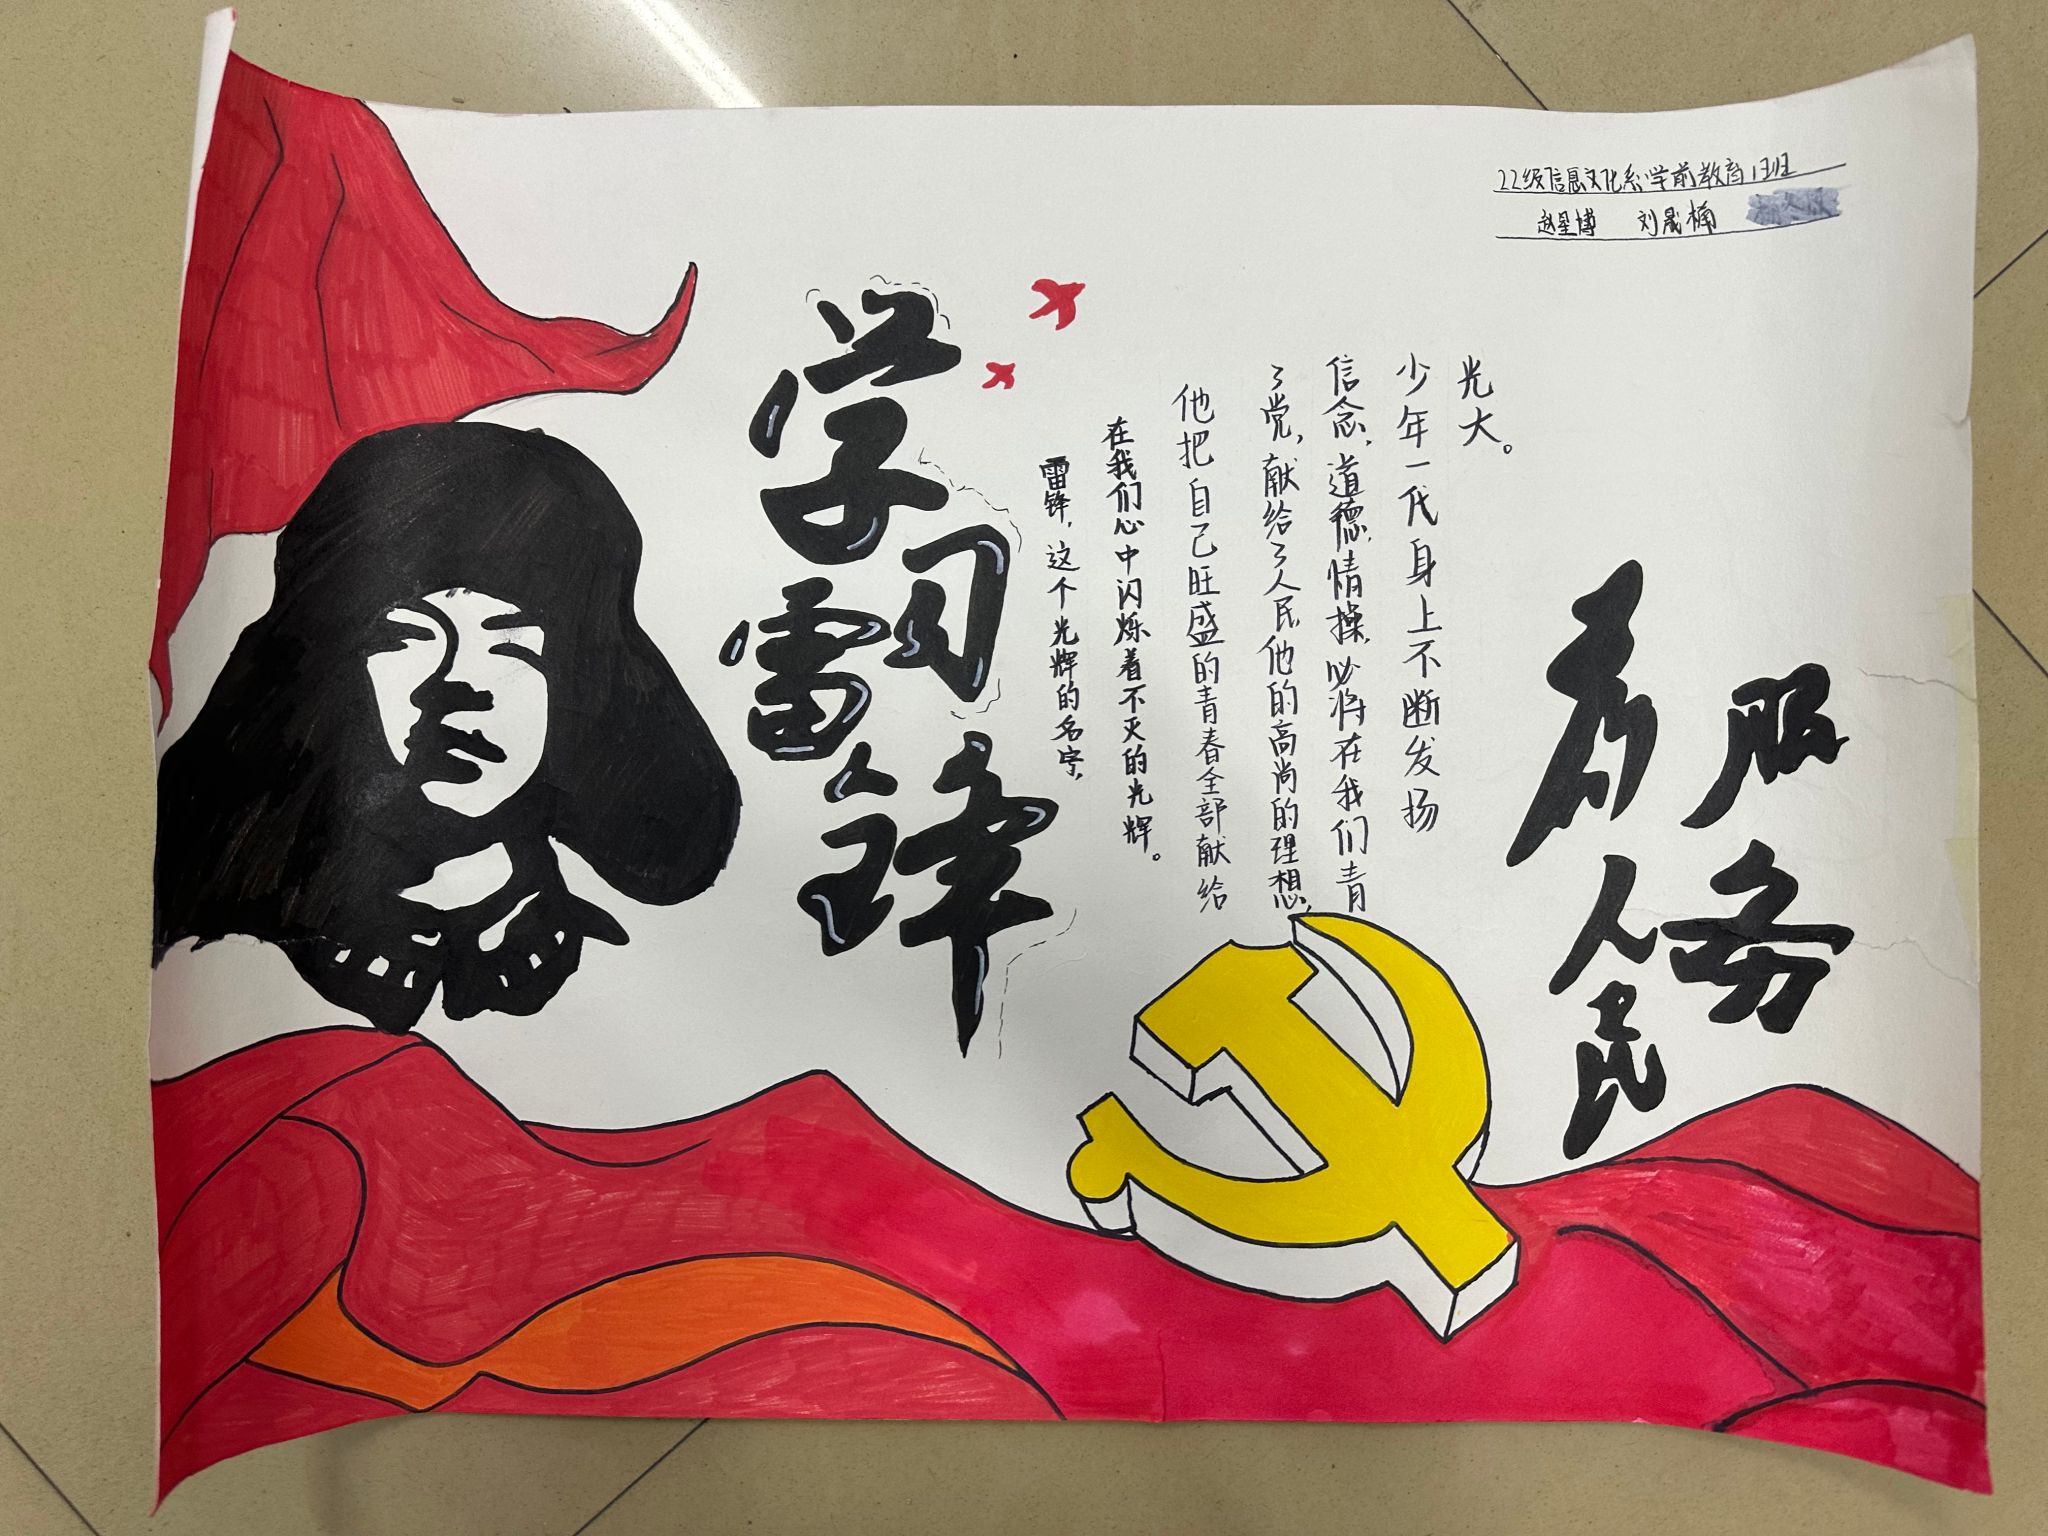 22级信息文化系学前教育1班
赵星博 刘晟楠
学习
雷锋
雷锋，这个光辉的名字，
在我们心中闪烁着不灭的光辉。
他把自己旺盛的青春全部献给
了党，献给了人民，他的高尚的理想，
信念，道德，情操，必将在我们青
少年一代身上不断发扬
光大。
为人民
服务